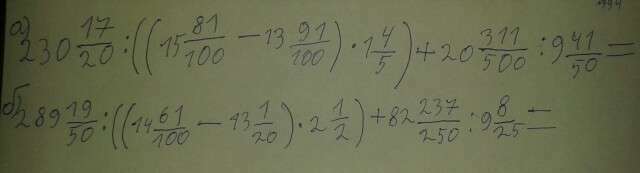 а) 230 17/20 : ((15 81/100 - 13 91/100) · 1 4/5) + 20 311/500 : 9 41/50 =
б) 289 19/50 : ((14 61/100 - 13 1/20) · 2 1/2) + 82 237/250 : 9 8/25 =